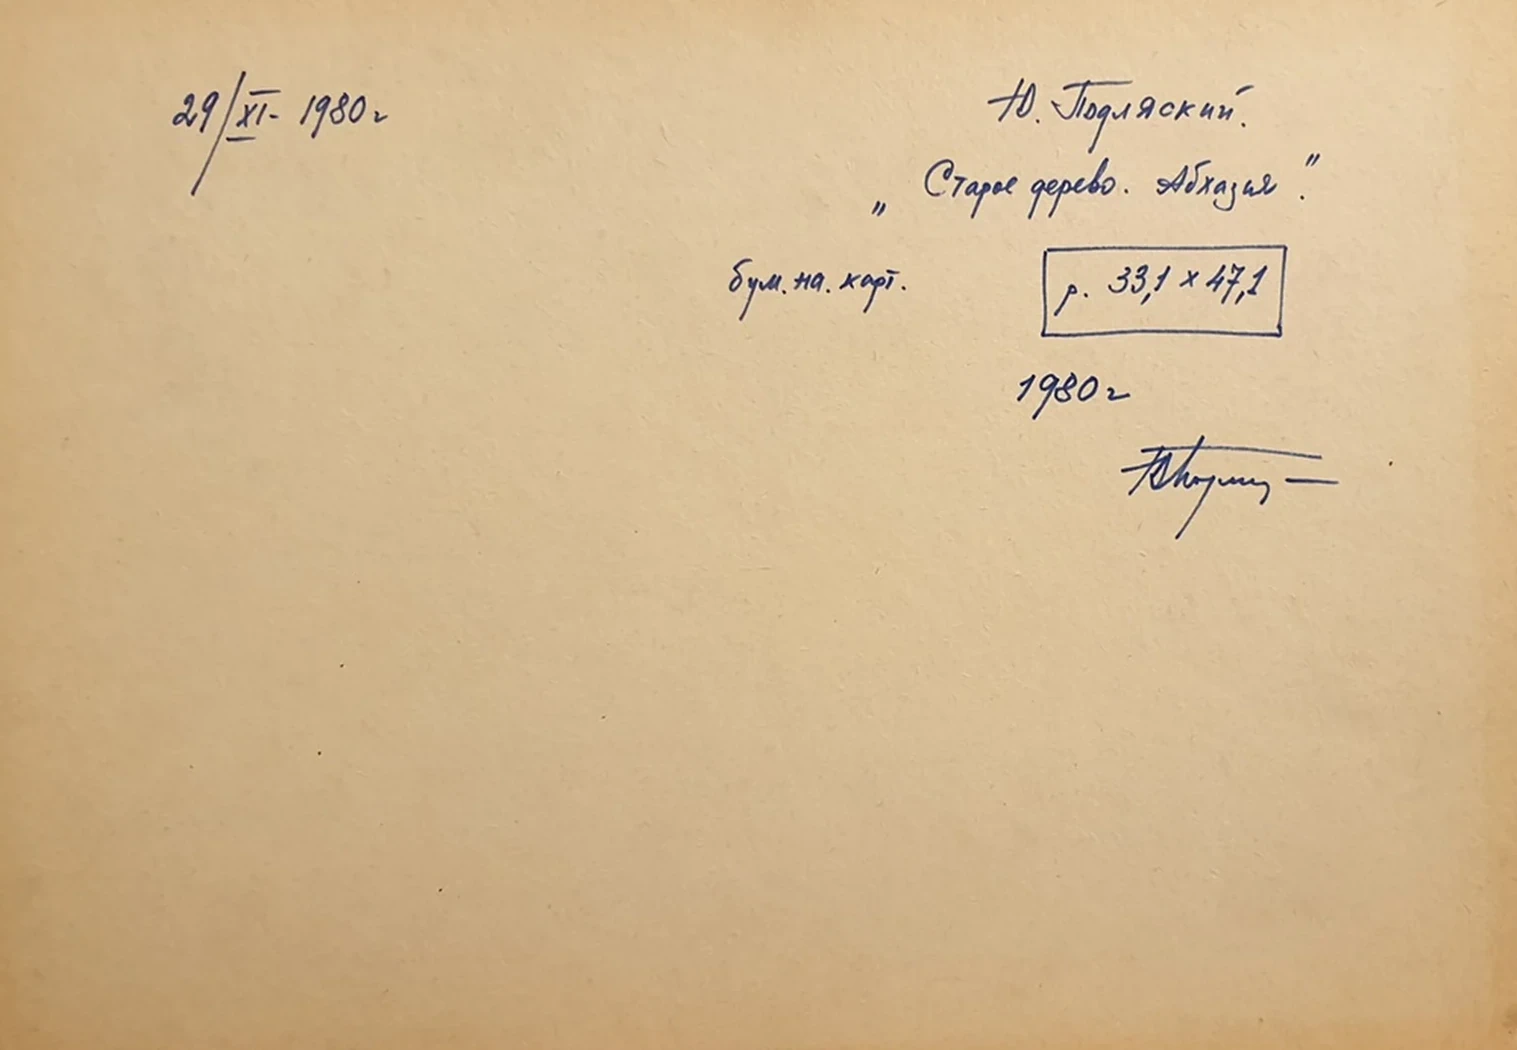 29/XI- 1980г
Ю. Подляский.
„Старое дерево. Абхазия".
бум. на. карт.
р. 33,1 x 47,1
1980г